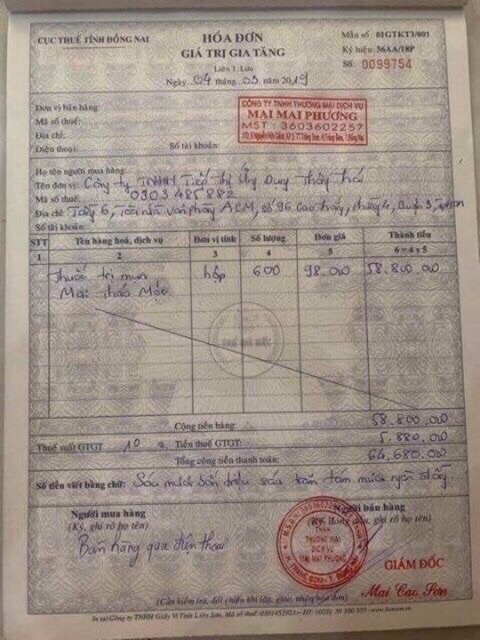 CỤC THUẾ TỈNH ĐỒNG NAI
HÓA ĐƠN
GIÁ TRỊ GIA TĂNG
Liên 1: Lưu
Ngày 04 tháng 03 năm 2019
Mẫu số: 01GTKT3/001
Ký hiệu: 36AA/18P
Số 0099754
Đơn vị bán hàng:
Mã số thuế:
Địa chỉ:
Điện thoại: Số tài khoản:
CÔNG TY TNHH THƯƠNG MẠI DỊCH VỤ
MAI MAI PHƯƠNG
MST: 3603602257
Họ tên người mua hàng:
Tên đơn vị: Công ty TNHH Tiếp Thị Duy Thủy
Mã số thuế: 0303485882
Địa chỉ: Tầng 6, Tòa nhà văn phòng ACM, số 96 Cao Thắng, phường 4, Quận 3, TpHCM
Số tài khoản:
STT Tên hàng hoá, dịch vụ Đơn vị tính Số lượng Đơn giá Thành tiền
1 2 3 4 5 6 = 4 x 5
Thuốc trị mụn hộp 600 98.000 58.800.000
Mai Thảo Mộc
Cộng tiền hàng: 58.800.000
Thuế suất GTGT: 10 % Tiền thuế GTGT: 5.880.000
Tổng cộng tiền thanh toán: 64.680.000
Số tiền viết bằng chữ: Sáu mươi bốn triệu sáu trăm tám mươi ngàn đồng.
Người mua hàng
(Ký, ghi rõ họ tên)
Bán hàng qua điện thoại
Người bán hàng
(Ký, đóng dấu, ghi rõ họ tên)
TNHH
THƯƠNG MẠI
DỊCH VỤ
MAI MAI PHƯƠNG
GIÁM ĐỐC
Mai Cao Sơn
(Cần kiểm tra, đối chiếu khi lập, giao, nhận hóa đơn)
In tại Công ty TNHH Giấy Vi Tính Liên Sơn, Mã số thuế